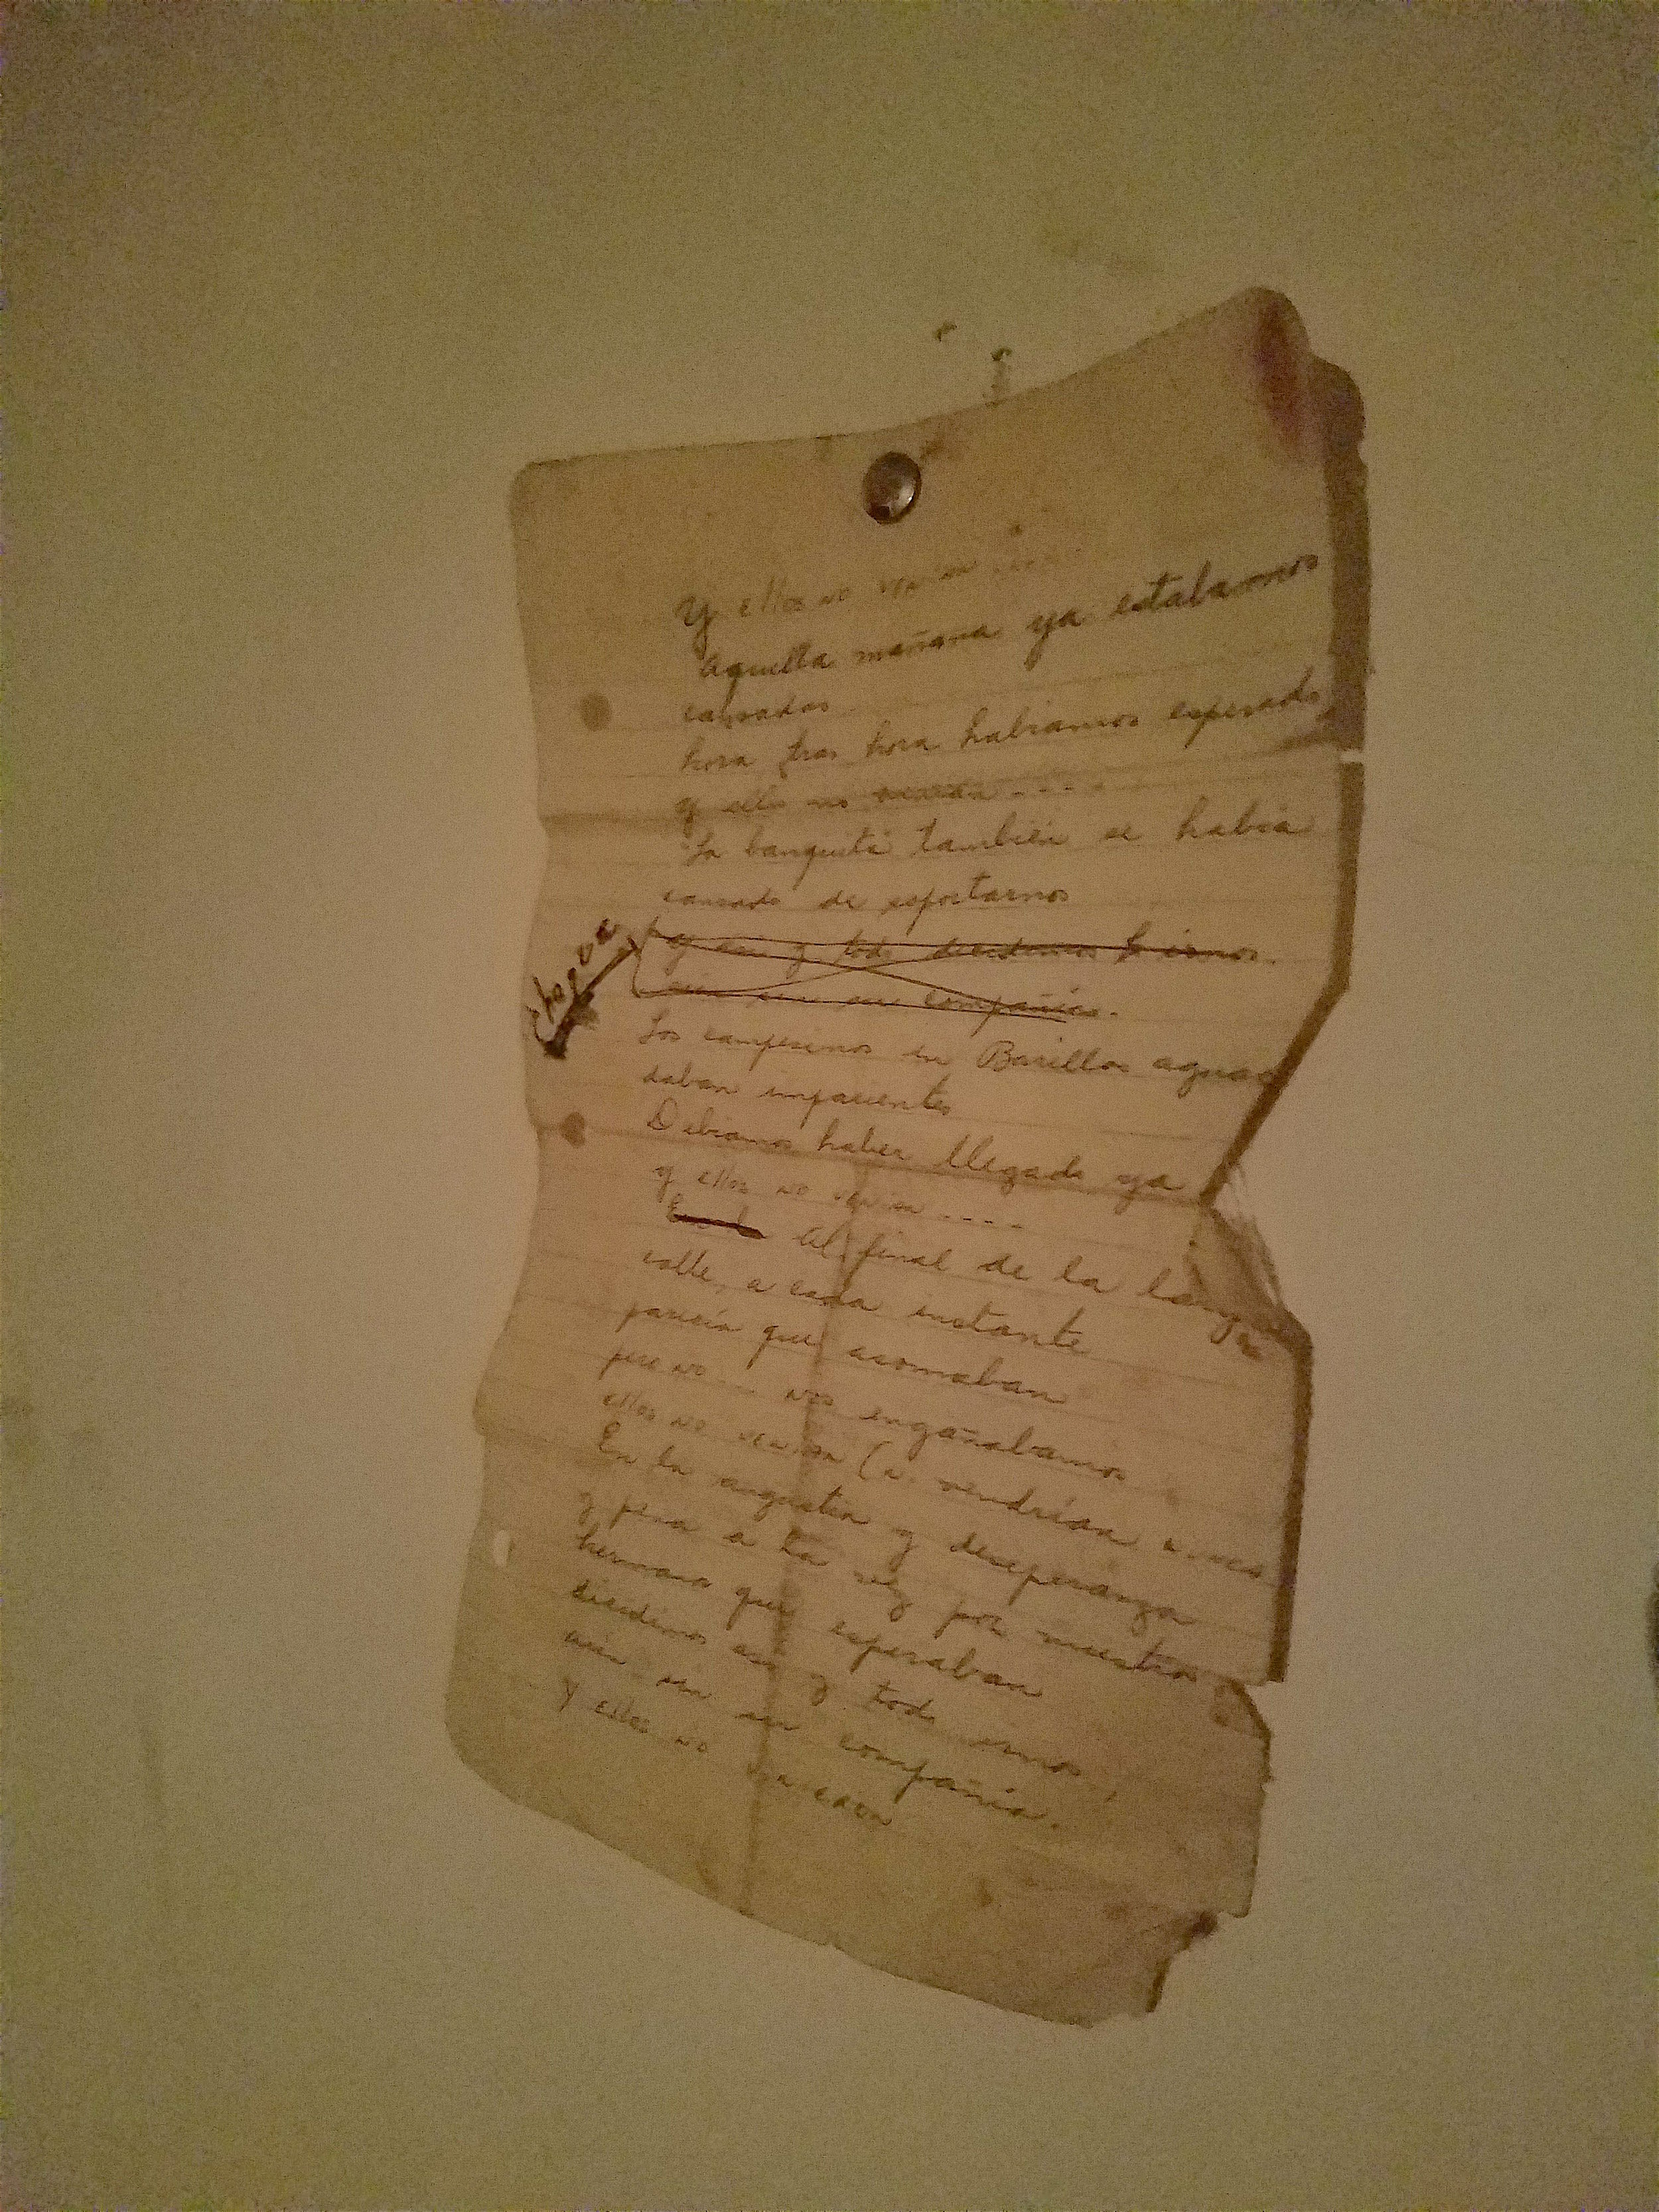 Y ellos no venian
Aquella mañana ya estabamos
cansados
hora tras hora habiamos esperado
y ellos no venian - - - -
La banquita también se habia
cansado de soportarnos
y asi y todo decidimos irnos.
aún sin su compañia.
Los campesinos en Barillas aguar
daban impacientes
Debiamos haber llegado ya
y ellos no venian - - - -
En la Al final de la larga
calle, a cada instante
parecia que asomaban
pero no... nos engañabamos
ellos no venian (no vendrian nunca
En la angustia y deseperanza
y pena a la vez por nuestros
hermanos que esperaban
decidimos asi y todo irnos,
aún sin su compañia.
Y ellos no